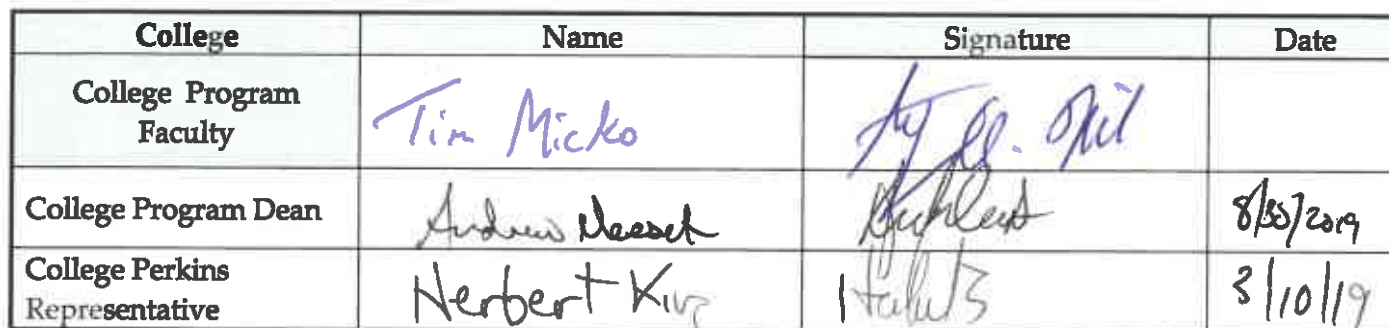 College Name Signature Date
College Program
Faculty
Tim Micko
College Program Dean Andrew 8/30/2019
College Perkins
Representative
Herbert King 3/10/19